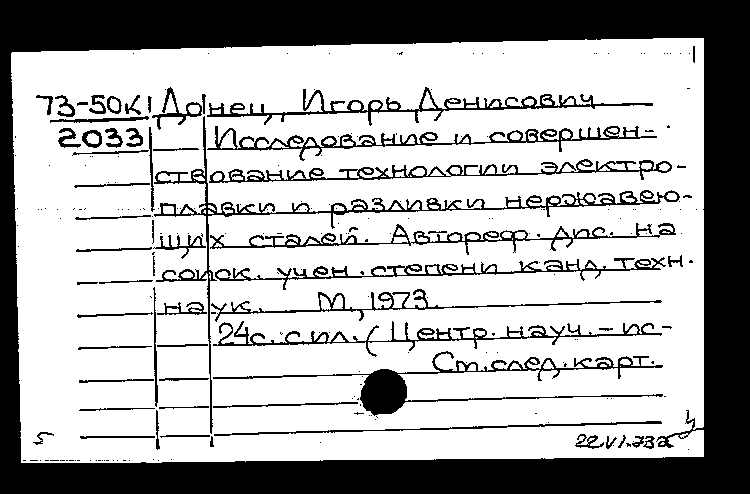 73-50к Донец, Игорь Денисович
2033 Исследование и совершен-
ствование технологии электро-
плавки и разливки нержавею-
щих сталей. Автореф. дис. на
соиск. учен. степени канд. техн.
наук. М., 1973.
24с. с ил. (Центр. науч.-ис-
См. след. карт.
5
22.VI.73